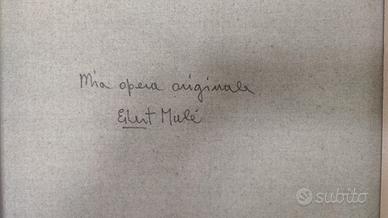 Mia opera originale
Mulé
subito